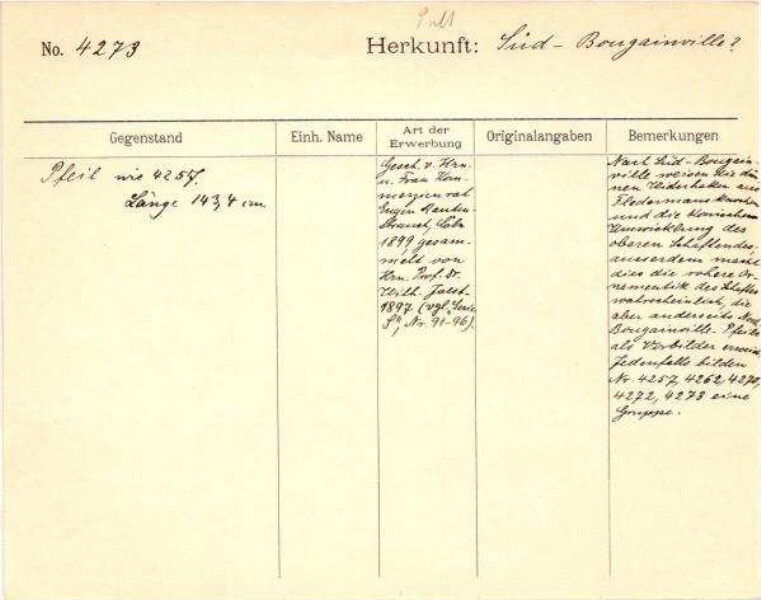 Pult
No. 4273
Herkunft: Süd - Bougainville?
Gegenstand
Einh. Name
Art der
Erwerbung
Originalangaben
Bemerkungen
Pfeil wie 4257.
Länge 143,4 cm
Gesch. v. Hrn.
u. Frau Kom-
merzienrat
Eugen Rauten-
strauch, Cöln
1899 gesam-
melt von
Hrn. Prof. Dr.
Wilh. Joest
1897 (vgl. "Serie
S", Nr. 91-96).
Nach Süd-Bougain-
ville weisen die dün-
nen Widerhaken aus
Fledermausknochen
und die konischen
Umwicklung des
oberen Schaftendes,
ausserdem macht
dies die rohere Or-
namentik des Schaftes
wahrscheinlich, die
aber anderseits Nord
Bougainville-Pfeile
als Vorbilder
Jedenfalls bilden
Nr. 4257, 4262, 4270,
4272, 4273 eine
Gruppe.